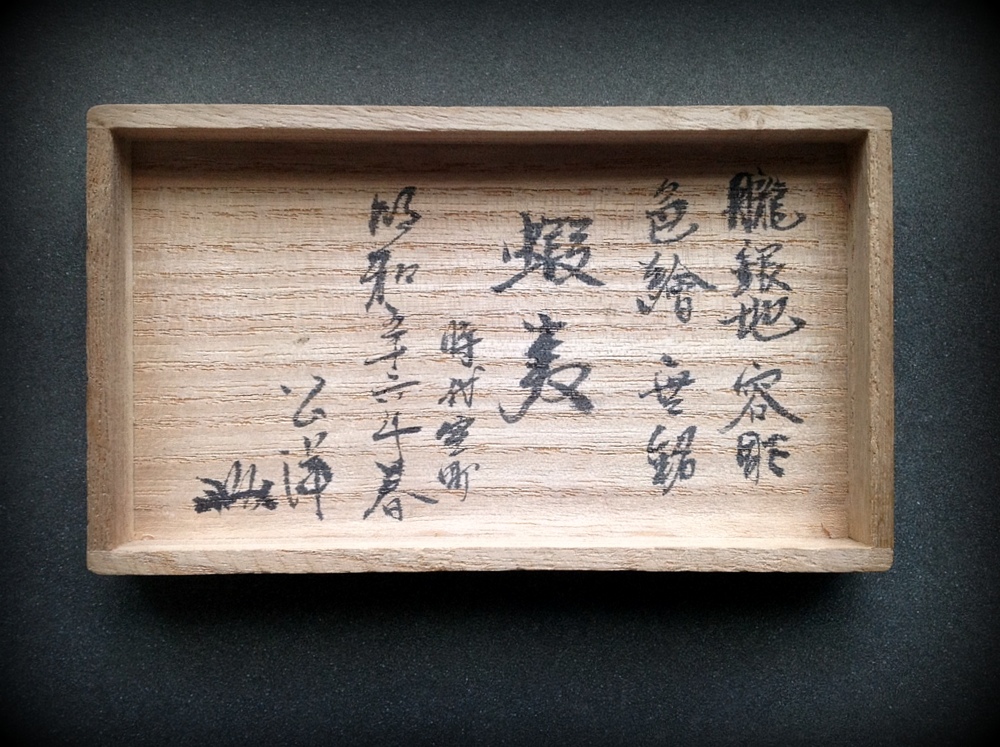 朧銀地 容彫
色繪 無銘
蝦夷
時代室町
昭和五十六年春
公洋